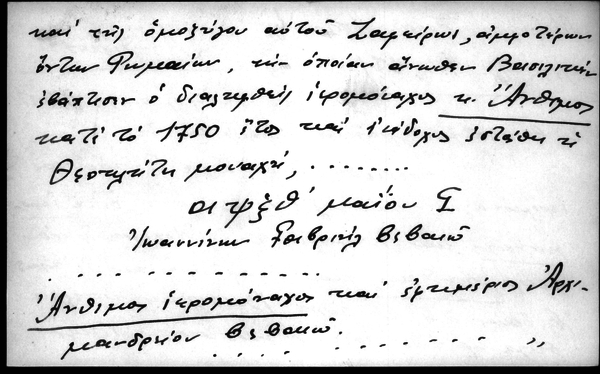 καὶ τῆς ὁμοζύγου αὐτοῦ Σαφείρως, ἀμφοτέρων
ὄντων Ῥωμαίων, τὴν ὁποίαν ἄνωθεν Βασιλικὴν
ἐβάπτισεν ὁ διαληφθεὶς ἱερομόναχος κ. Ἄνθιμος
κατὰ τὸ 1750 ἔτος καὶ ἀνάδοχος ἐστάθη ἡ
μοναχή, ........
αιψξθ΄ μαΐου
Ἰωαννίνων Γαβριὴλ βεβαιῶ
. . . . . . . . . . . . . .
Ἄνθιμος ἱερομόναχος καὶ ἐφημέριος Ἀρχι-
μανδρείου βεβαιῶ.
. . . . . . . . . . ,,